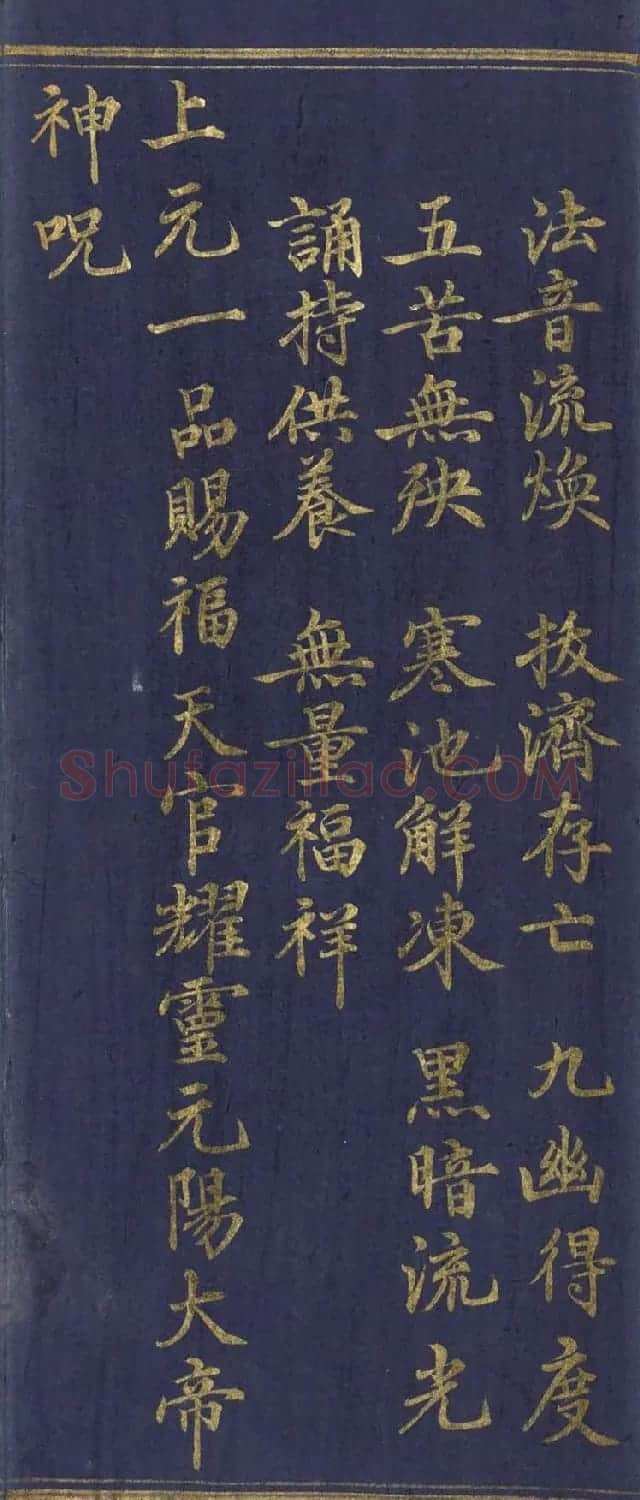 法音流煥 拔濟存亡 九幽得度
五苦無殃 寒池解凍 黑暗流光
誦持供養 無量福祥
上元一品賜福天官耀靈元陽大帝
神呪
Shufaziliao.COM